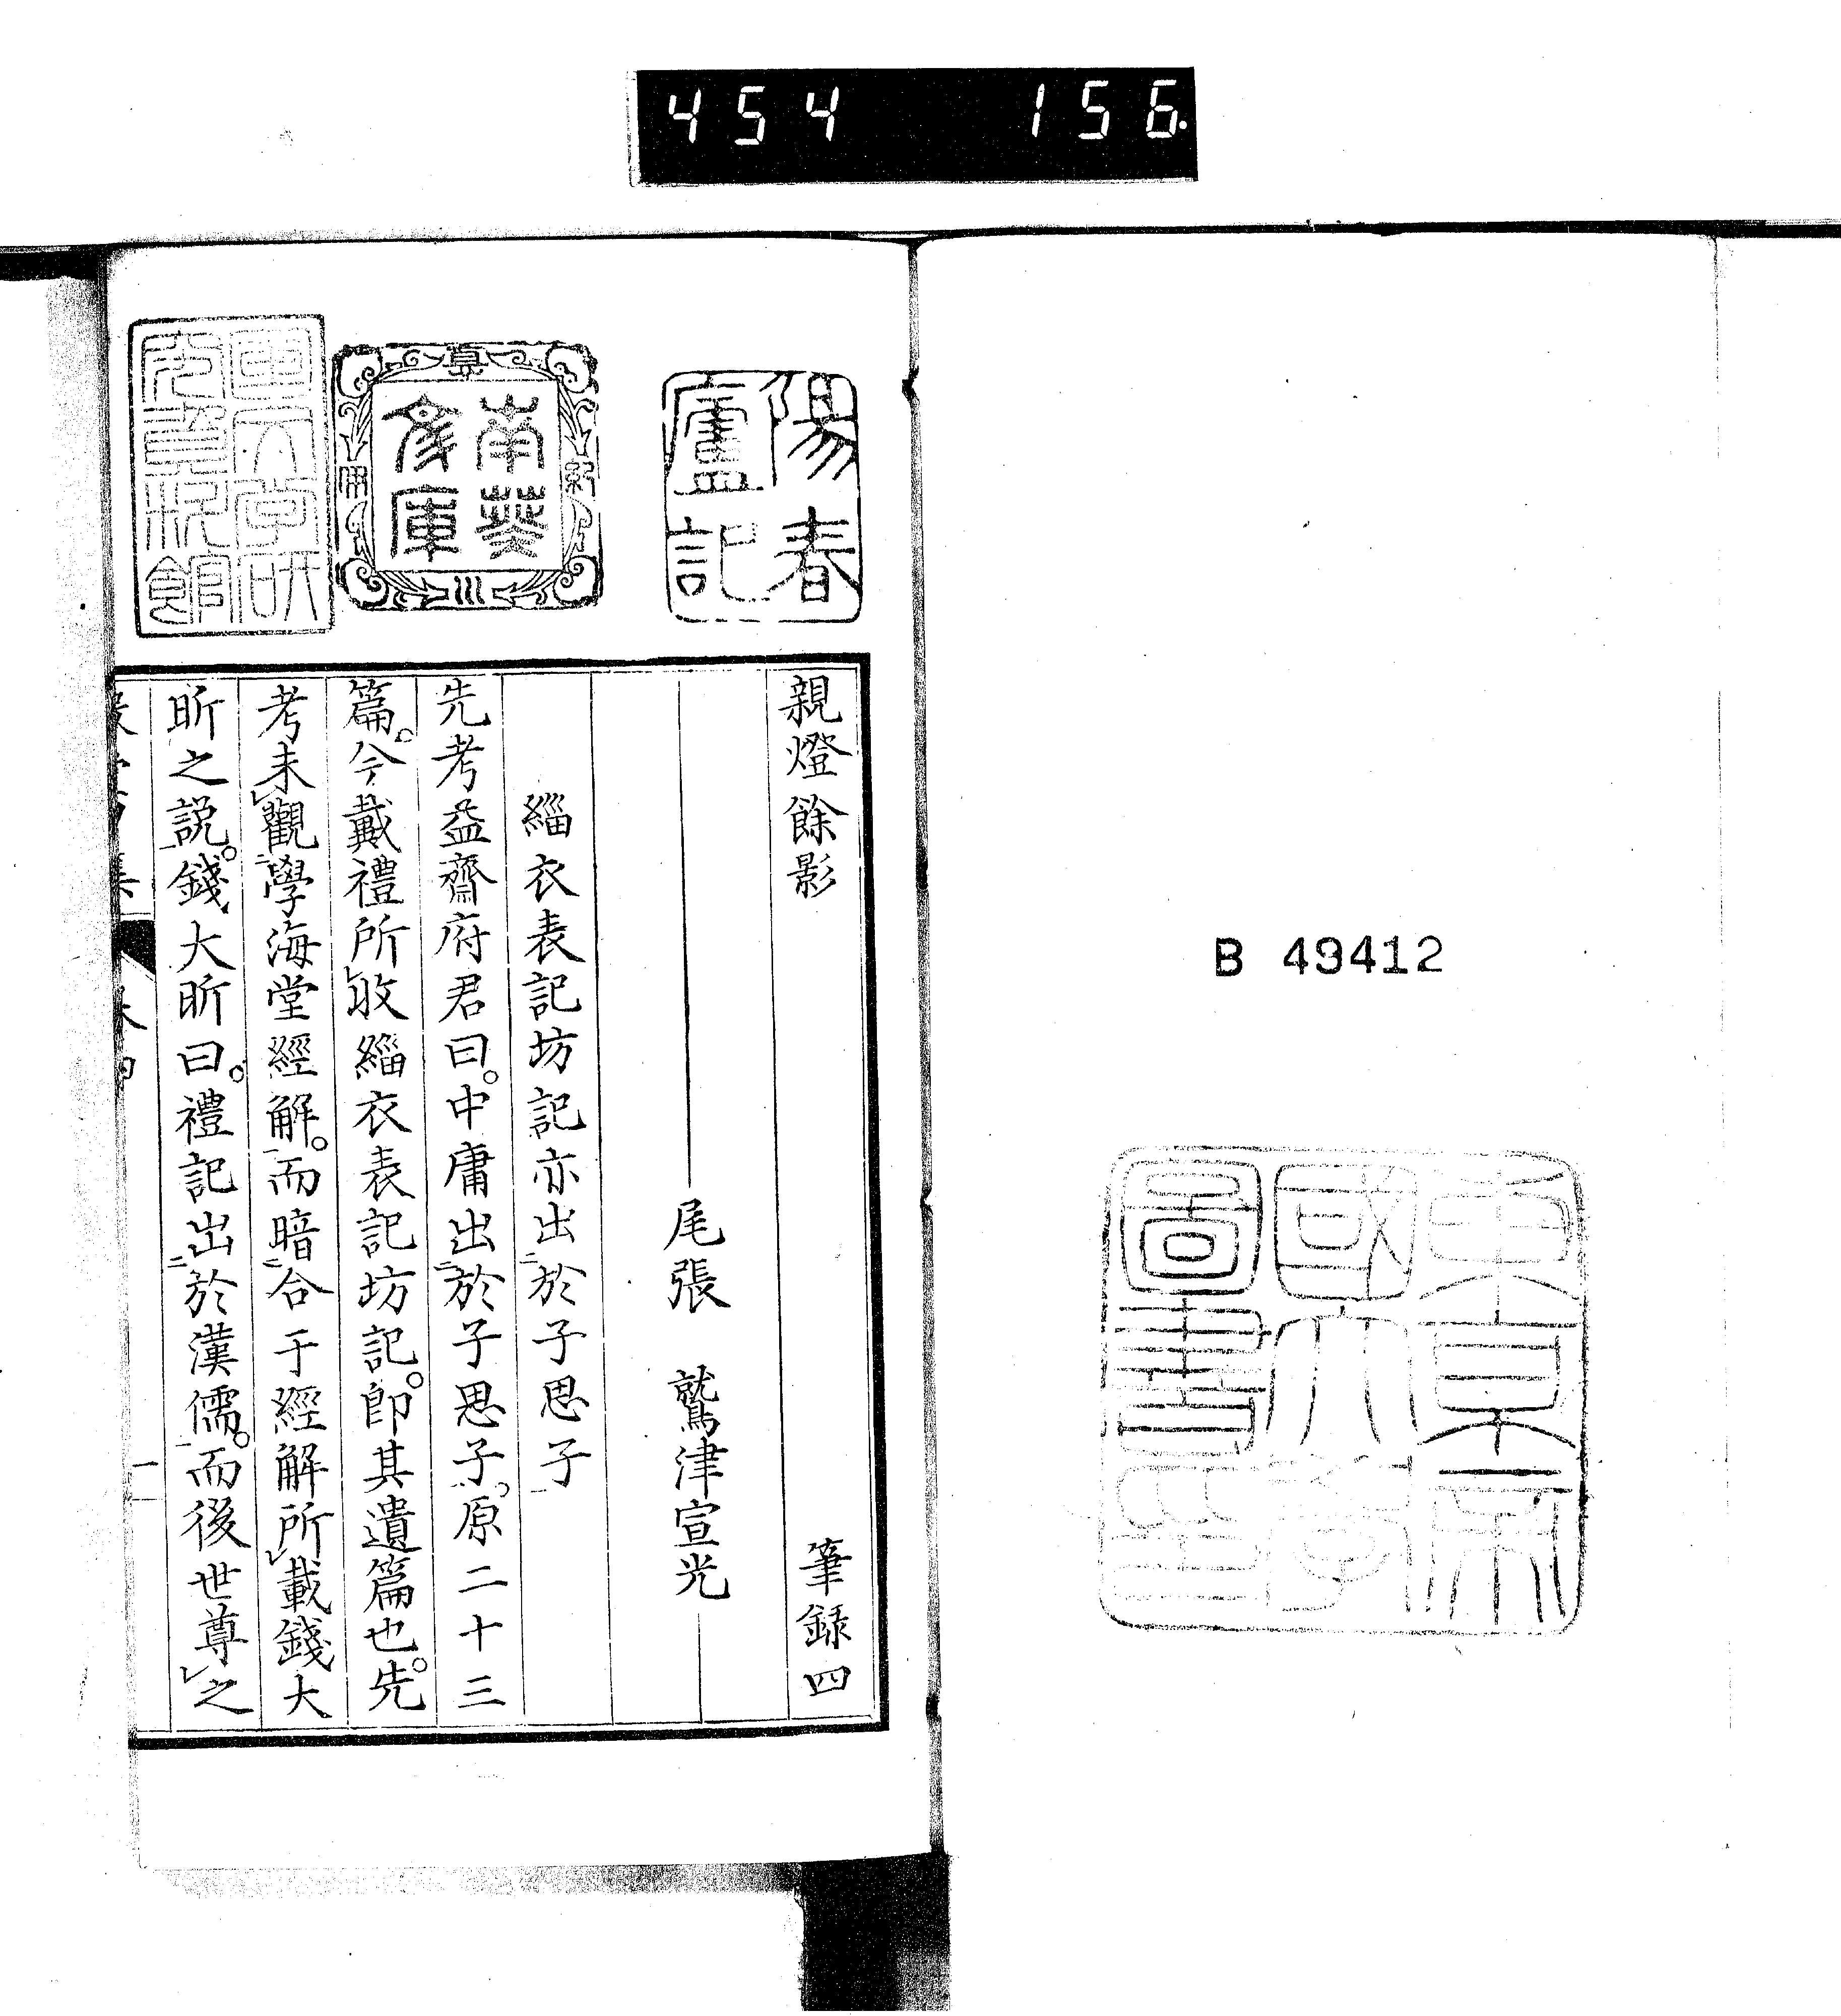 454 156.
B 49412
東京帝
國大學
圖書印
陽春
廬記
南葵
文庫
國文學研
究資料館
親燈餘影 筆錄四
尾張 鷲津宣光
緇衣表記坊記亦出於子思子
先考益齋府君曰。中庸出於子思子。原二十三
篇。今戴禮所收緇衣表記坊記。即其遺篇也。先
考未觀學海堂經解。而暗合于經解所載錢大
昕之說。錢大昕曰。禮記出於漢儒。而後世尊之
一